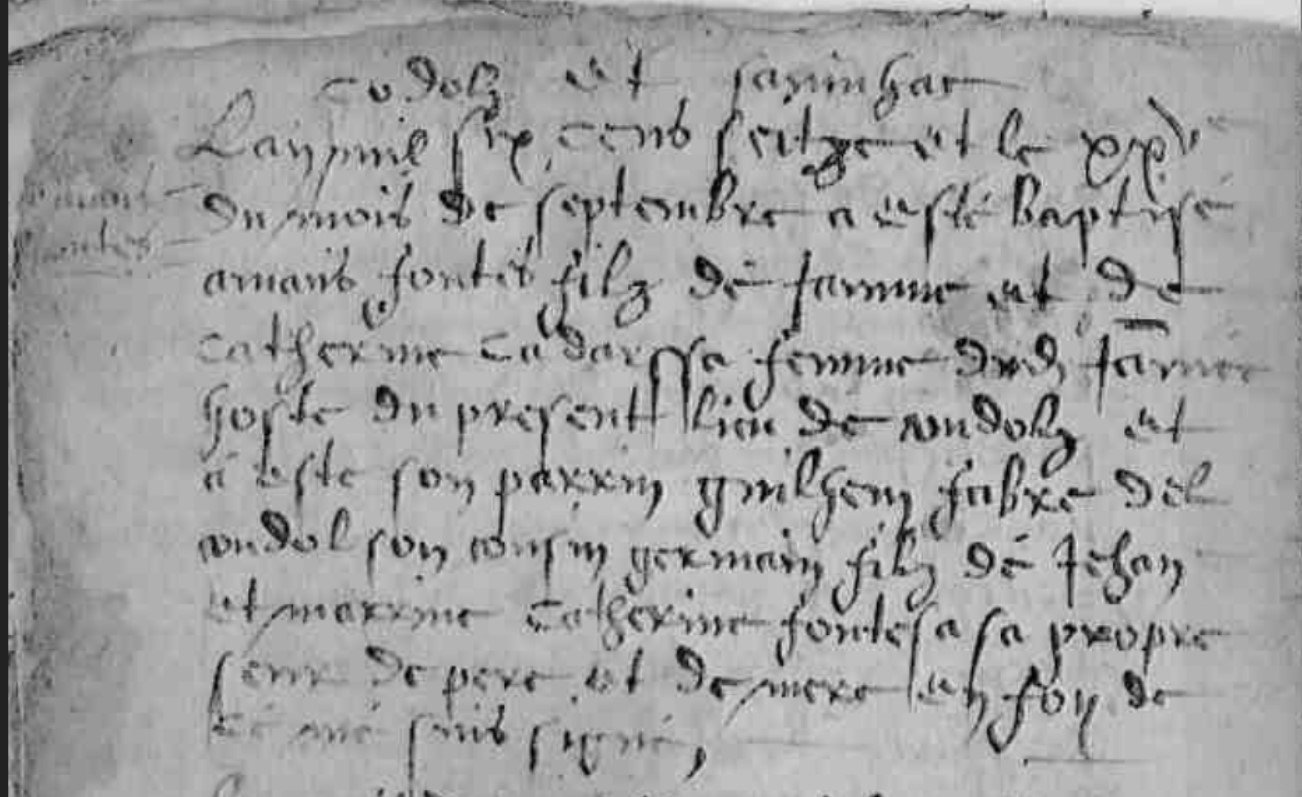 codolz et savinhac
Lan mil six cens seitze et le xxve
du mois de septembre a esté baptisé
amans fontes filz de Jamme et de
Catherine Cadarssa femme dud Jamme
hoste du present lieu de coudolz et
a este son parrin guilhem fabre del
coudol son cousin germain filz de Jehan
et marrine Catherine fontesa sa propre
seur de pere et de mere en foy de
ce me suis signé,
amans
fontes